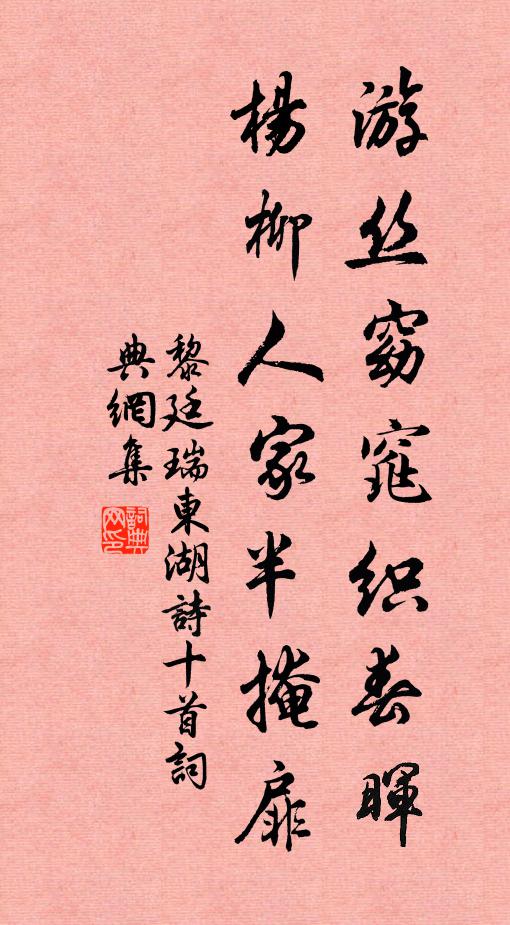 游丝窈窕织春晖
楊柳人家半掩扉
黎廷瑞東湖詩十首詞
典網集
詞典网印